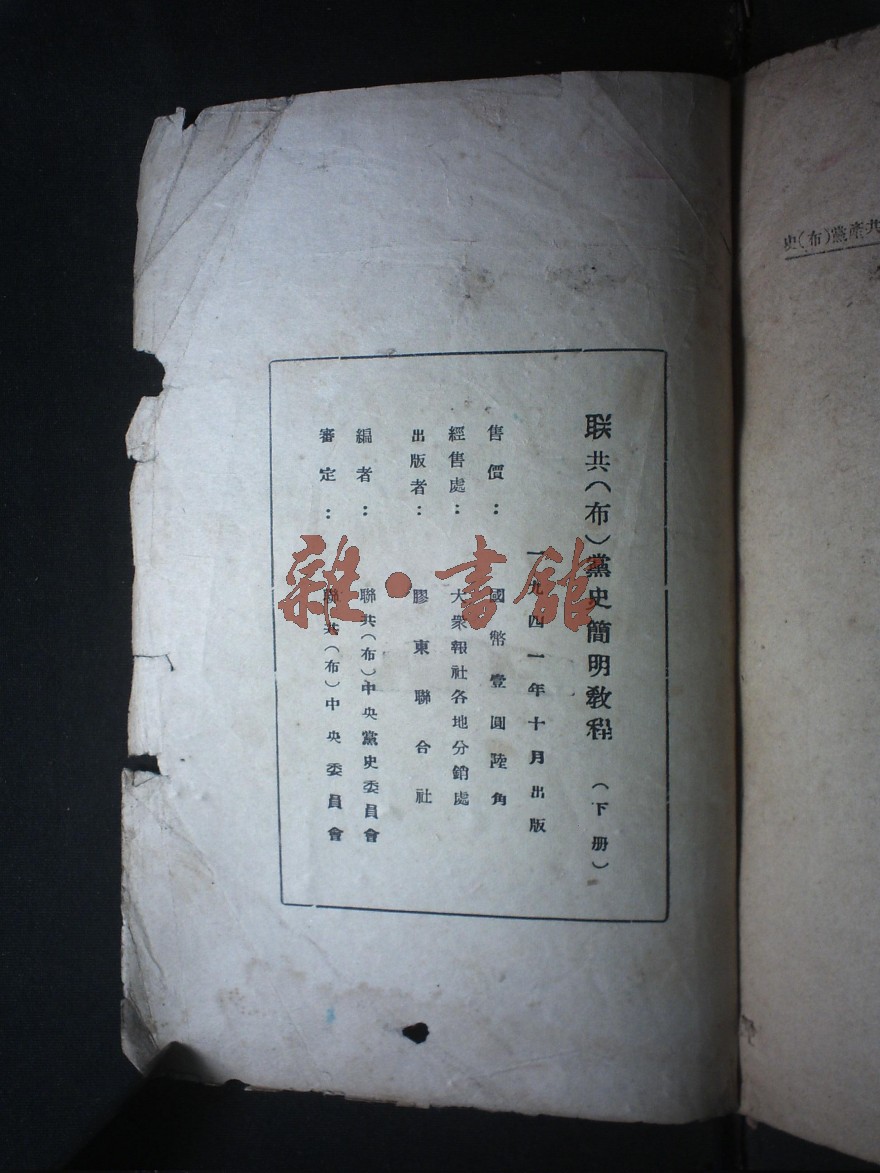 联共(布)黨史簡明教程 (下册)
一九四一年十月出版
售價: 國幣壹圓陸角
經售處: 大衆報社各地分銷處
出版者: 膠東聯合社
編者: 聯共(布)中央黨史委員會
審定: 聯共(布)中央委員會
雜·書館
史(布)黨產共